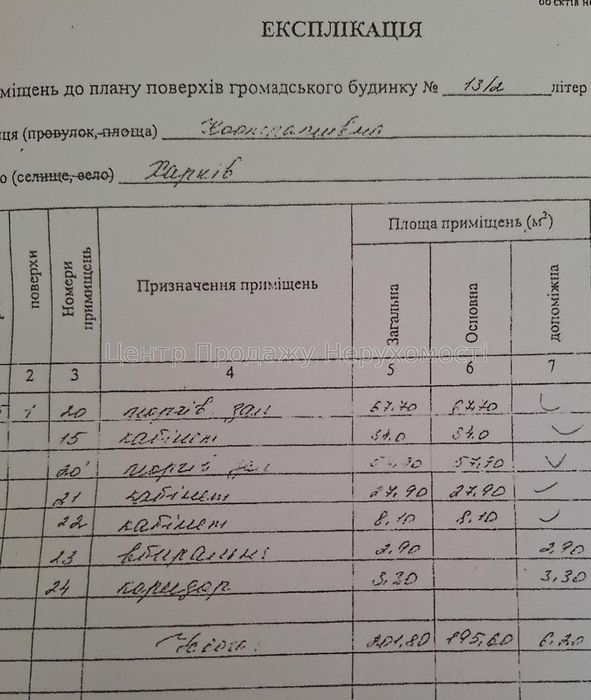 ЕКСПЛІКАЦІЯ
міщень до плану поверхів громадського будинку № 13/2 літер
ця (провулок, площа)
о (селище, село) Харків
поверхи
Номери приміщень
Призначення приміщень
Площа приміщень (м²)
Загальна
Основна
допоміжна
Центр Продажу Нерухомості
2 3 4 5 6 7
1 20 торгів. зал 67.70 67.70
15 кабінет 34.0 34.0
20' торгів. зал 57.90
21 кабінет 27.90 27.90
22 кабінет 8.10 8.10
23 2.90 2.90
24 коридор 3.30 3.30
201.80 195.60 6.20